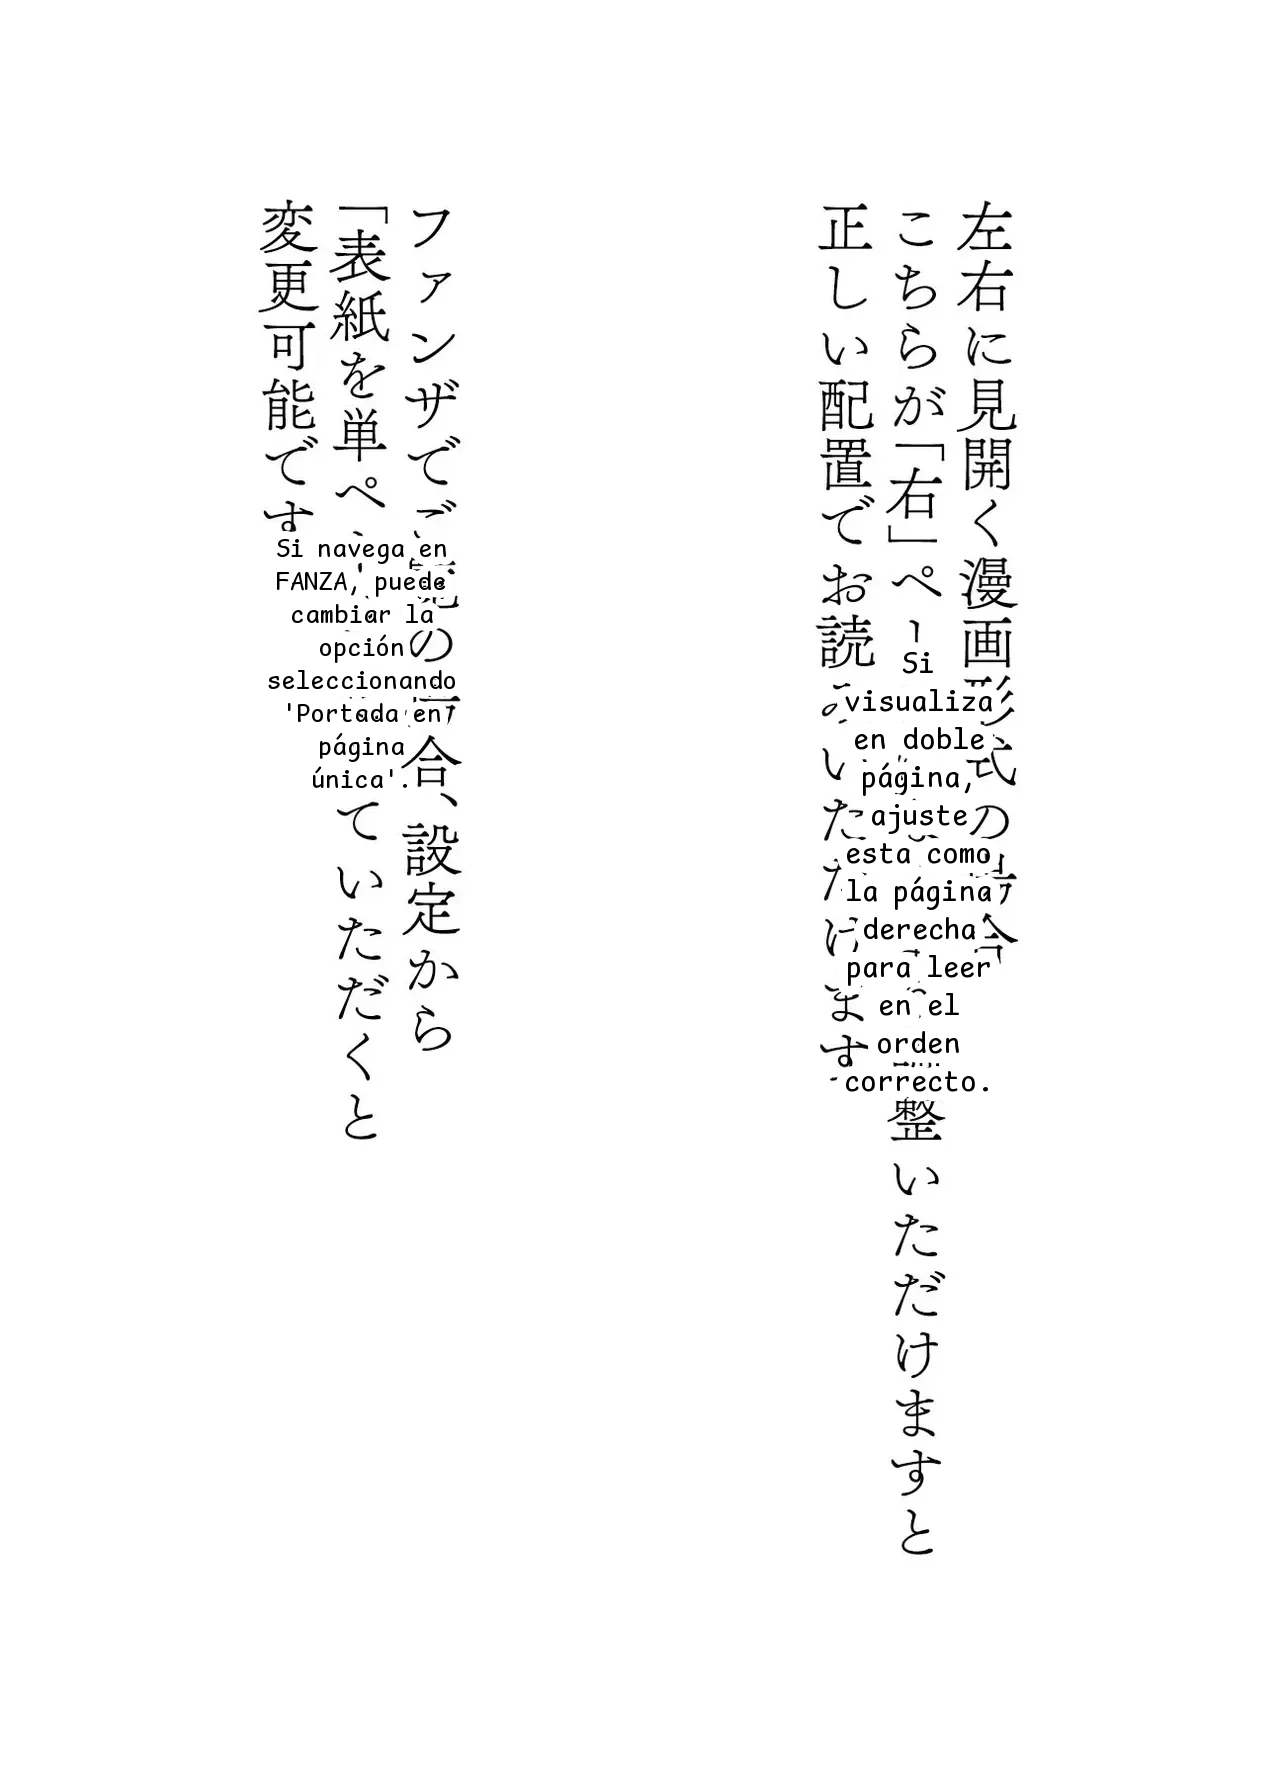 左右に見開く漫画形式の場合
こちらが「右」ペー
整いただけますと
正しい配置でお読みいただけます
Si
visualiza
en doble
página,
ajuste
esta como
la página
derecha
para leer
en el
orden
correcto.
ファンザでご覧の場合、設定から
「表紙を単ペ
ていただくと
変更可能です
Si navega en
FANZA, puede
cambiar la
opción
seleccionando
'Portada en
página
única'.